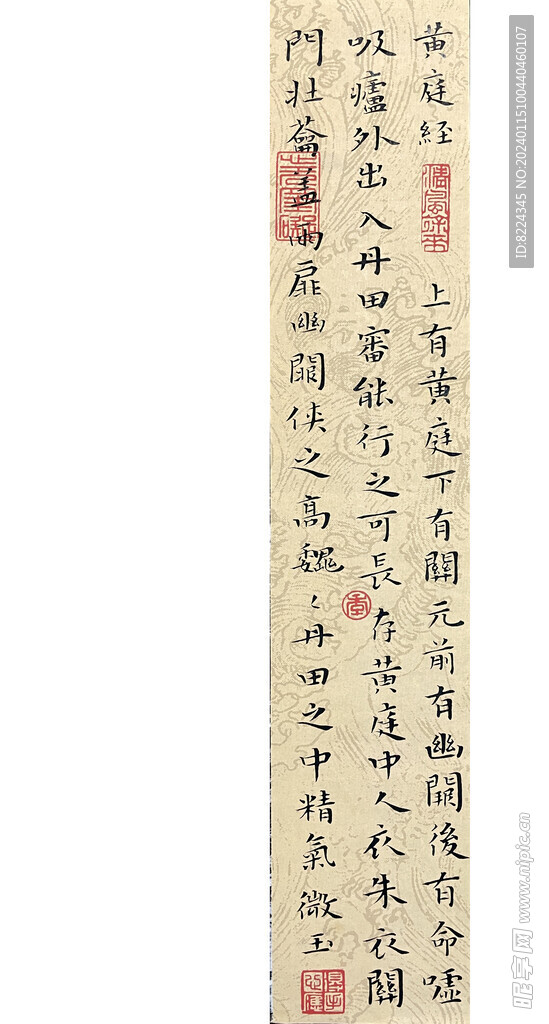 黄庭経
上有黄庭下有關元前有幽闕後有命噓
吸廬外出入丹田審能行之可長存黄庭中人衣朱衣關
門壯蘥蓋兩扉幽闕俠之高魏〻丹田之中精氣微玉
ID:8224345 NO:20240115100440460107
昵享网 www.nipic.cn